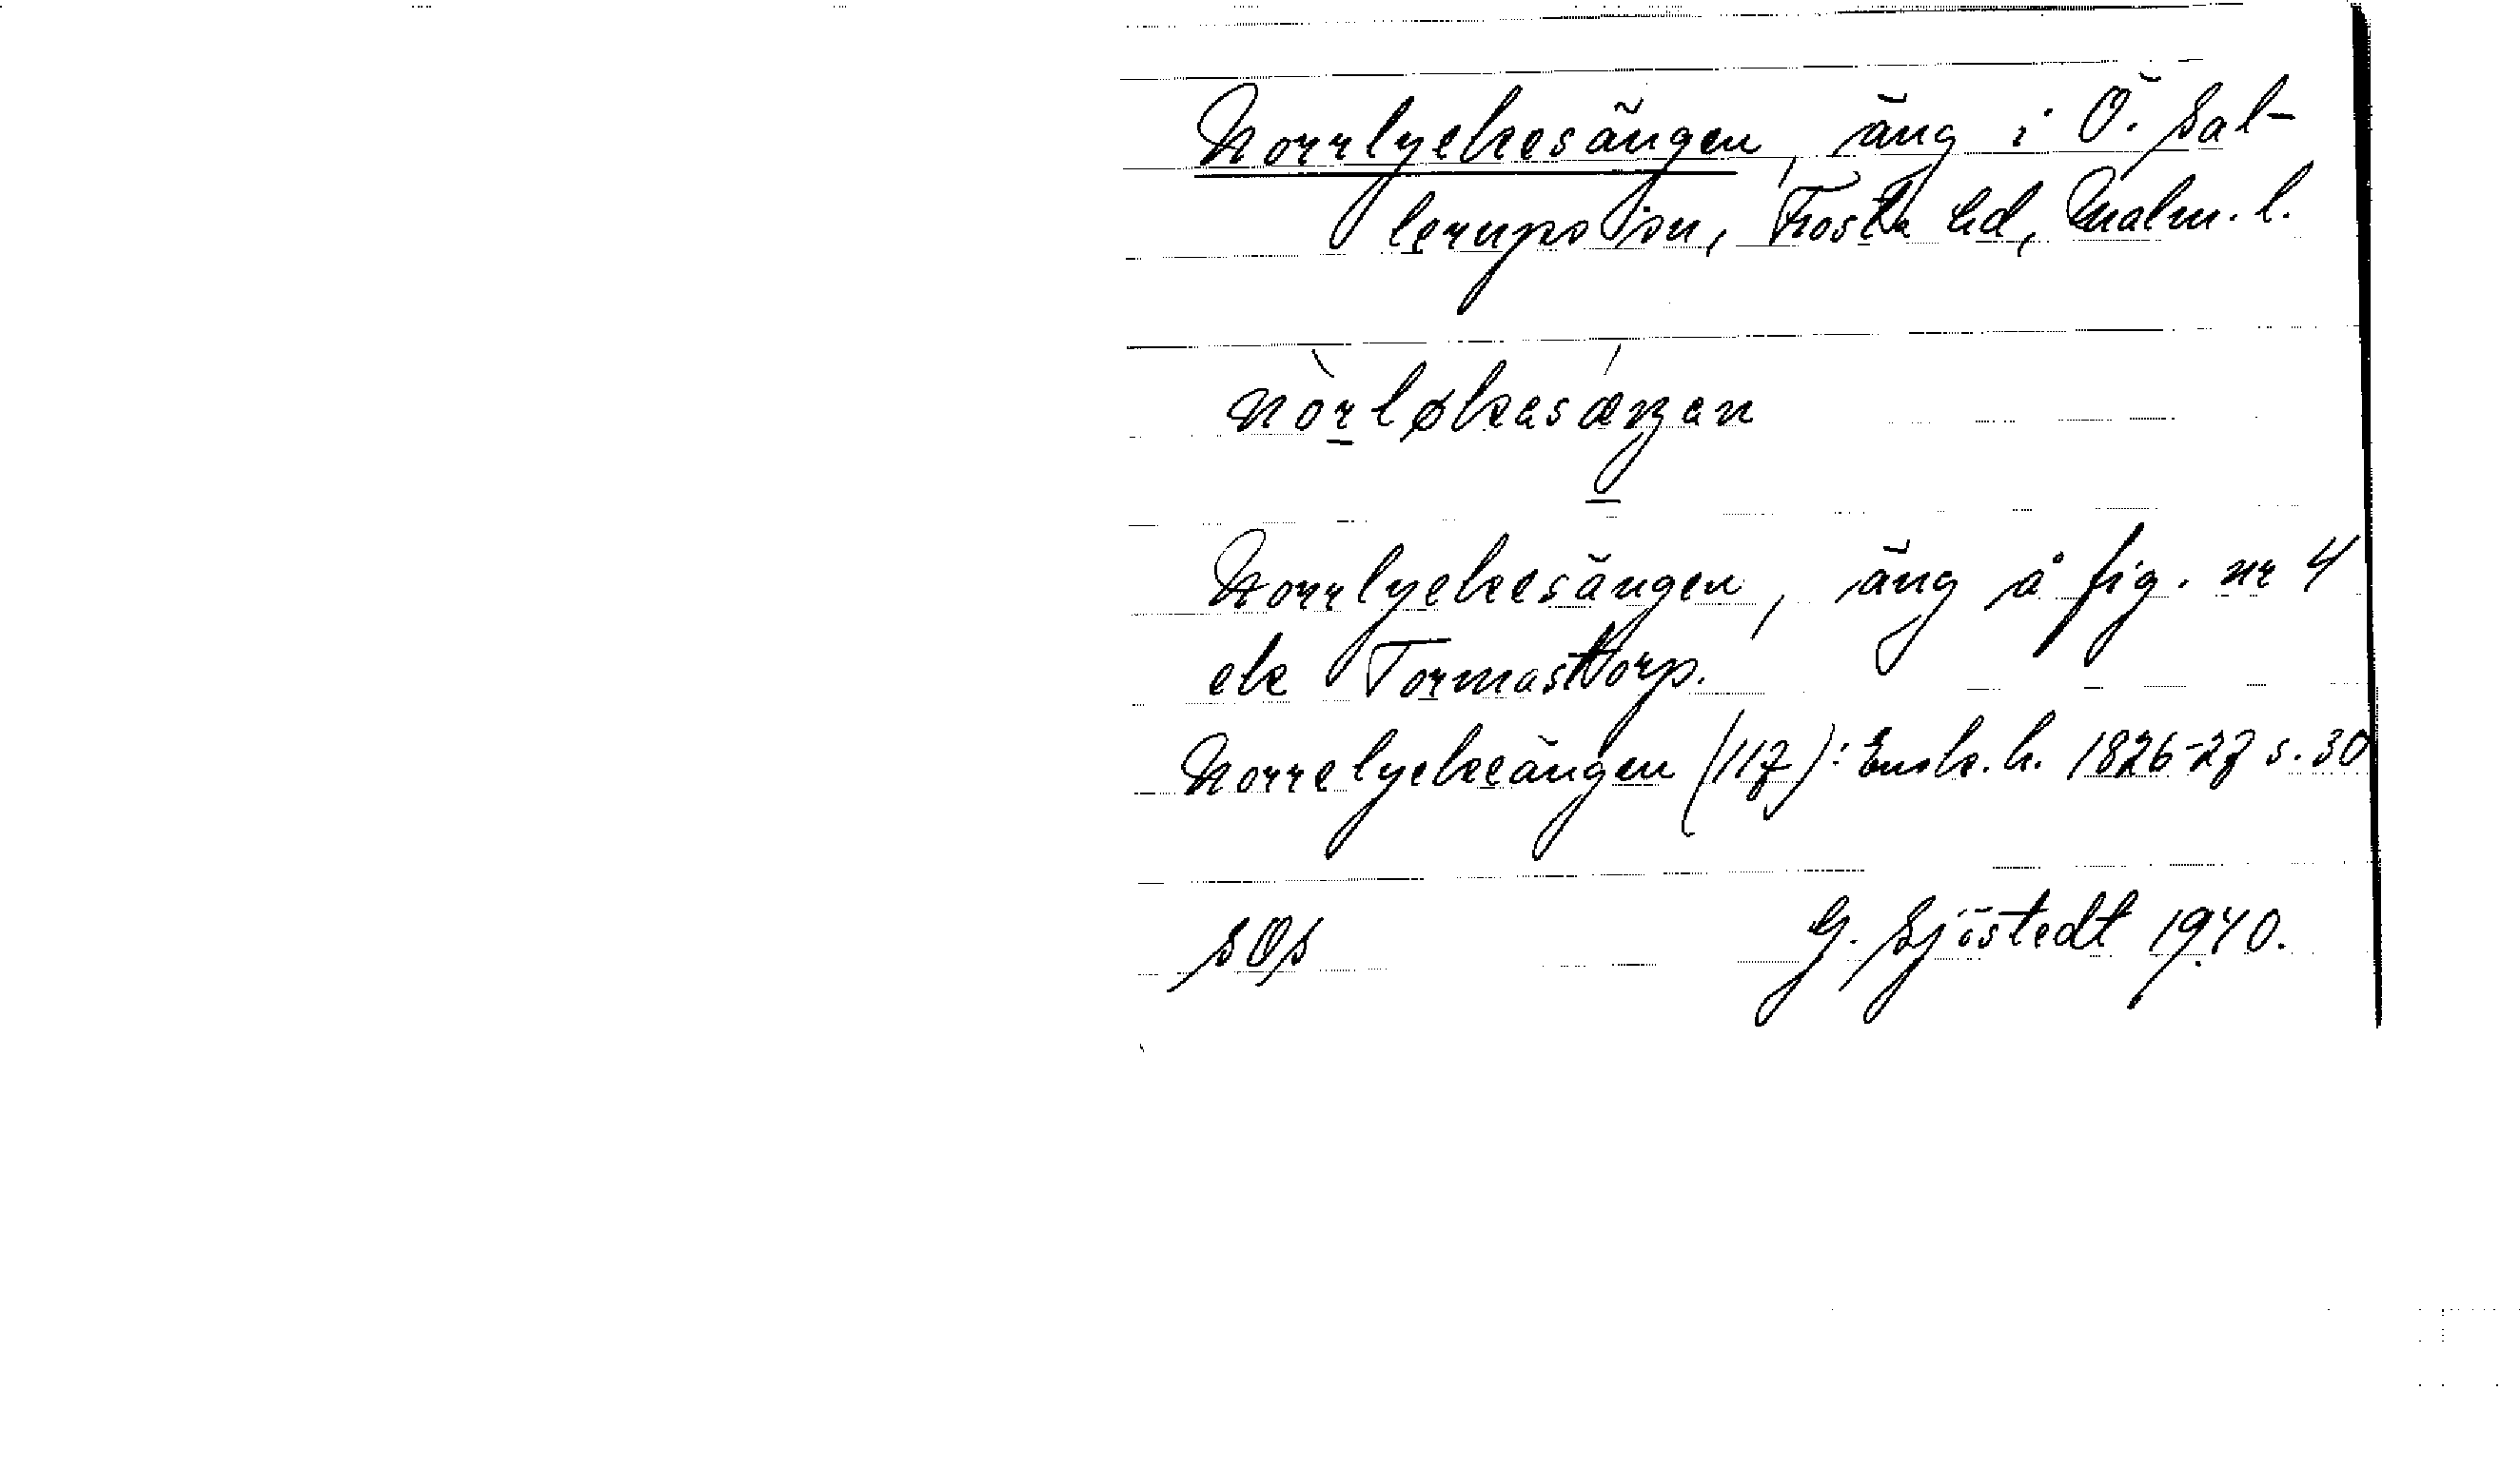 Norrlyckesängen, äng i Ö. Sal-
lerups sn, Frosta hd, Malm. l.
nòrløkasáŋan
Norrlyckesängen, äng å fig. nr 4
ek Tormastorp.
Norrelyckeängen (117): Ensk. h. 1826-27 s. 30
sOs G. Sjöstedt 1940.